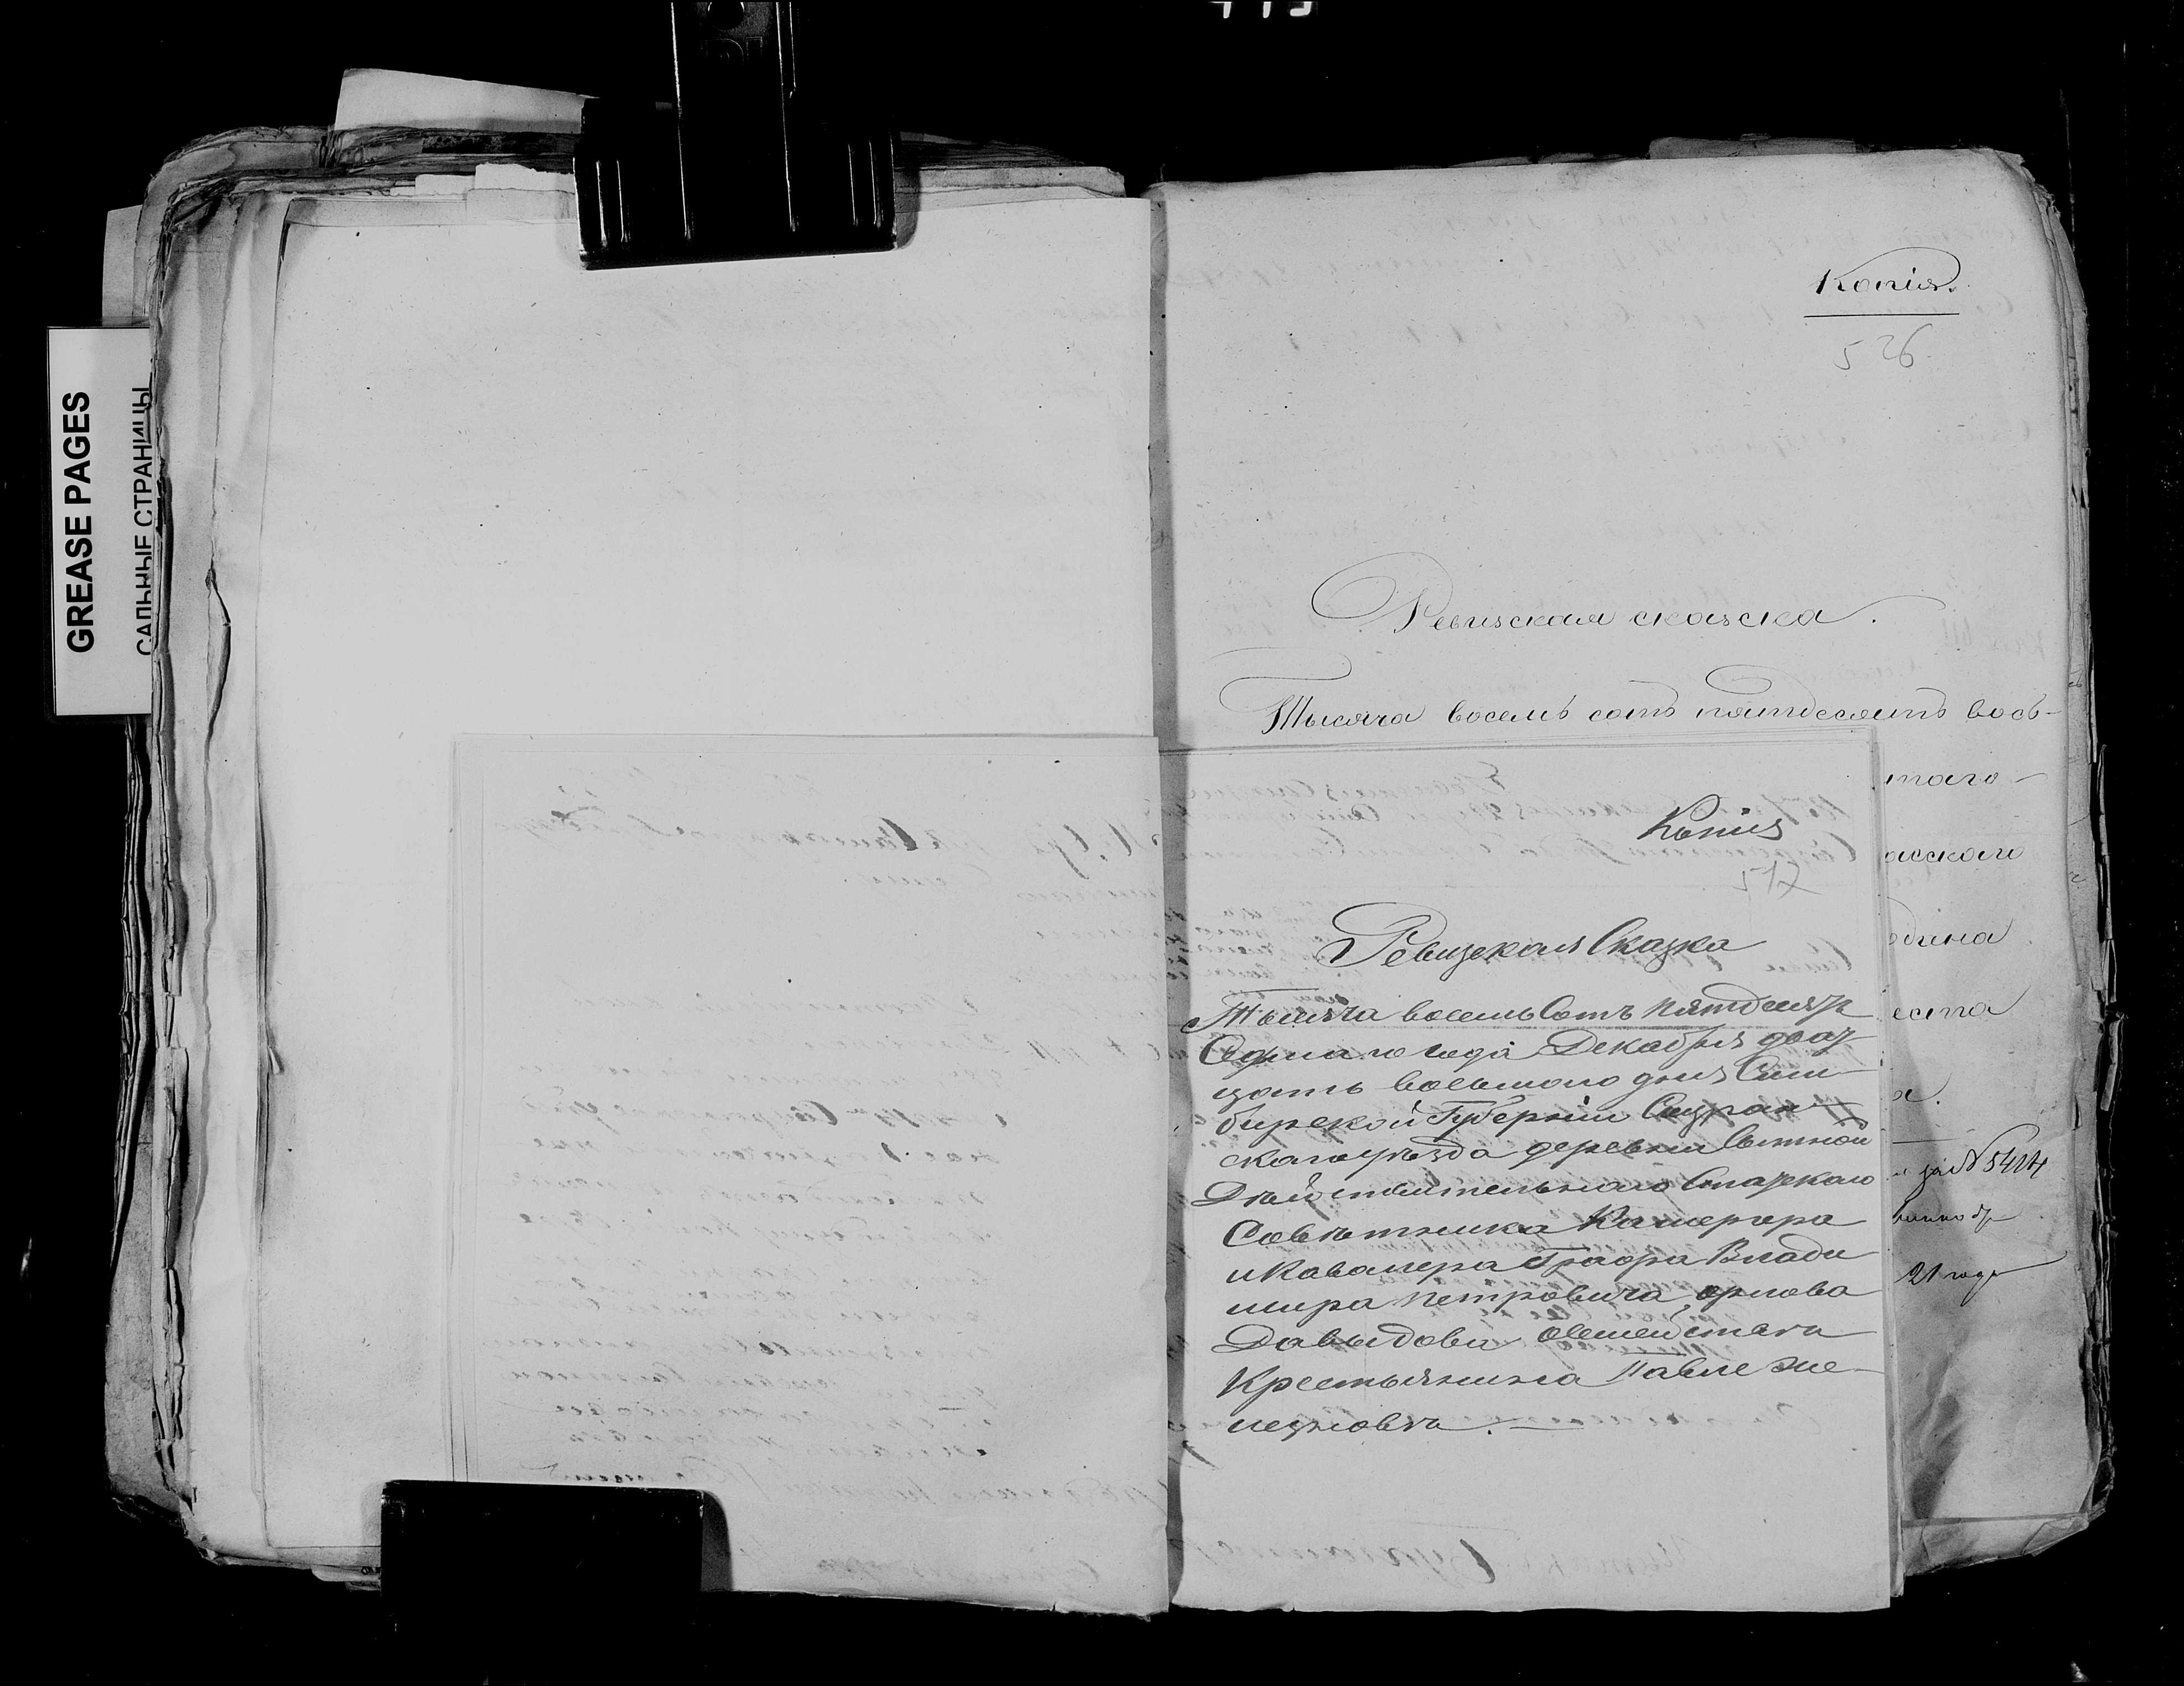 GREASE PAGES
САЛЬНЫЕ СТРАНИЦЫ
Копія.
526
Ревизская сказка.
Тысяча восемь сотъ пятдесятъ вось-
таго
дина
еста
а.
за № 5424
21 года
Копія
517
Ревизская Сказка
Тысяча восемь Сотъ пятдесятъ
Седмаго года Декабря двад
цать восьмого дня Сим
бирской Губерніи Сызран
скаго уѣзда деревни
Дѣйствительнаго Статскаго
Совѣтника Камергера
и Кавалера Графа Влади
мира Петровича орлова
Давыдова
Крестьянина Павле